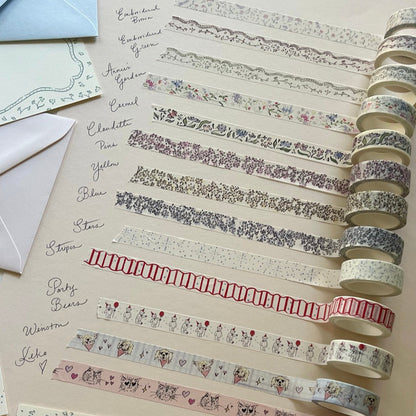 Embroidered
Brown
Embroidered
Green
Annie's
Garden
Carmel
Claudette
Pink
Yellow
Blue
Stars
Stripes
Party
Bears
Winston
Keko